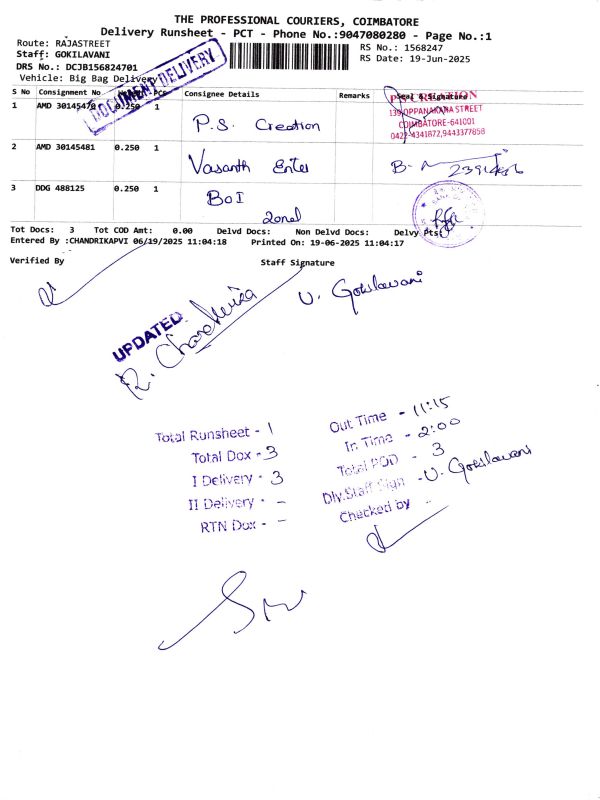 THE PROFESSIONAL COURIERS, COIMBATORE
Delivery Runsheet - PCT - Phone No.:9047080280 - Page No.:1
Route: RAJASTREET
RS No.: 1568247
Staff: GOKILAVANI
RS Date: 19-Jun-2025
DRS No.: DCJB156824701
Vehicle: Big Bag Delivery
DOCUMENT DELIVERY
S No Consignment No Weight PCS Consignee Details Remarks Seal & Signature
1 AMD 30145470 0.250 1
P.S. Creation
P.S. CREATION
139, OPPANAKARA STREET
COIMBATORE-641001
0422-4341872,9443377858
2 AMD 30145481 0.250 1
Vasanth Enter
3 DDG 488125 0.250 1
BOI
Zonal
Tot Docs: 3 Tot COD Amt: 0.00 Delvd Docs: Non Delvd Docs: Delvy Pts:
Entered By :CHANDRIKAPVI 06/19/2025 11:04:18 Printed On: 19-06-2025 11:04:17
Verified By Staff Signature
U. Gokilavani
UPDATED
R. Chandrika
Total Runsheet - 1
Total Dox - 3
I Delivery - 3
II Delivery - -
RTN Dox - -
Out Time - 11:15
In Time - 2:00
Total POD - 3
Dly.Staff Sign - U. Gokilavani
Checked by